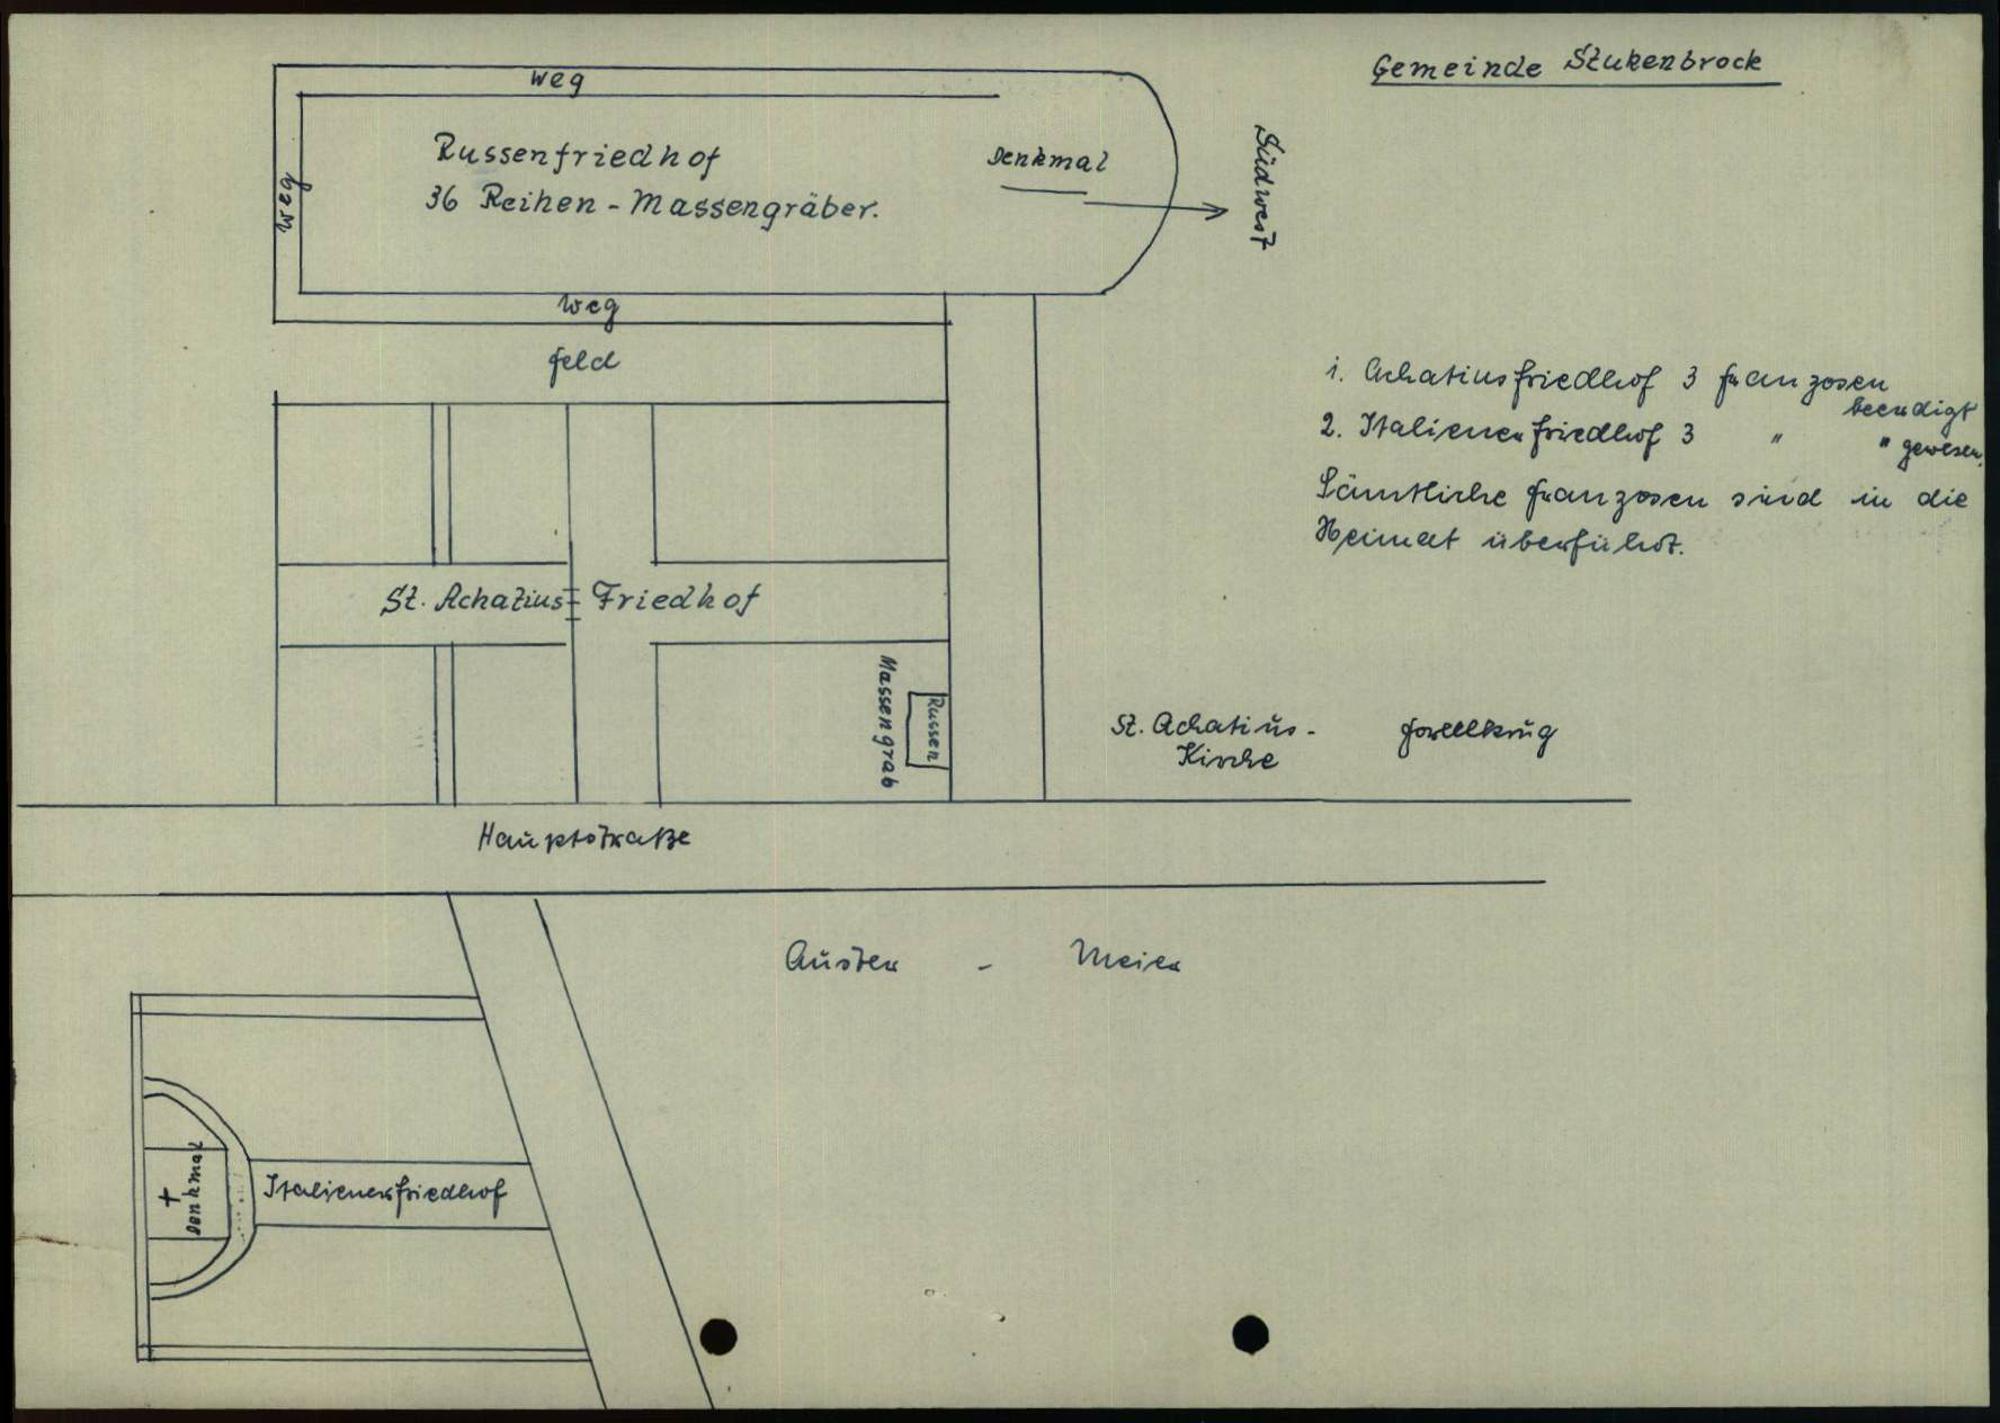 Gemeinde Stukenbrock
Weg
Russenfriedhof
36 Reihen - Massengräber.
Denkmal
Südwest
Weg
Weg
Feld
1. Achatiusfriedhof 3 Franzosen
beerdigt
2. Italienerfriedhof 3 " " gewesen.
Sämtliche Franzosen sind in die
Heimat überführt.
St. Achatius-Friedhof
Massengrab
Russen
St. Achatius-
Kirche
Forellkrug
Hauptstraße
Auster - Meier
Denkmal
Italienerfriedhof